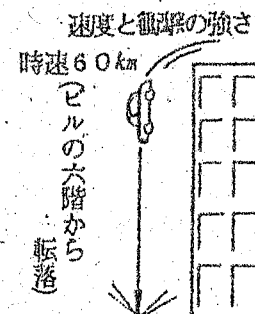 速度と衝撃の強さ
時速60km
(ビルの六階から
転落)